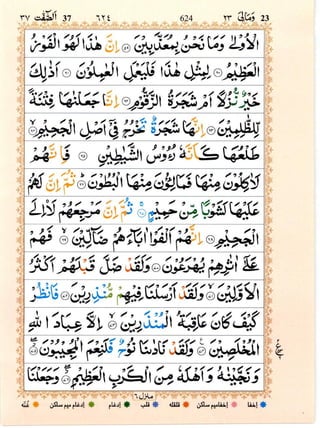 ٣٧ اَلصّٰفّٰت 37 ٦٢٤ 624 ٢٣ وَمَالِیَ 23
الْاُوْلٰى وَمَا نَحْنُ بِمُعَذَّبِيْنَ ﴿٥٩﴾ اِنَّ هٰذَا لَهُوَ الْفَوْزُ
الْعَظِيْمُ ﴿٦٠﴾ لِمِثْلِ هٰذَا فَلْيَعْمَلِ الْعٰمِلُوْنَ ﴿٦١﴾ اَذٰلِكَ
خَيْرٌ نُّزُلًا اَمْ شَجَرَةُ الزَّقُّوْمِ ﴿٦٢﴾ اِنَّا جَعَلْنٰهَا فِتْنَةً
لِّلظّٰلِمِيْنَ ﴿٦٣﴾ اِنَّهَا شَجَرَةٌ تَخْرُجُ فِيْۤ اَصْلِ الْجَحِيْمِ ﴿٦٤﴾
طَلْعُهَا كَاَنَّهٗ رُءُوْسُ الشَّيٰطِيْنِ ﴿٦٥﴾ فَاِنَّهُمْ
لَاٰكِلُوْنَ مِنْهَا فَمَالِـُٔوْنَ مِنْهَا الْبُطُوْنَ ﴿٦٦﴾ ثُمَّ اِنَّ لَهُمْ
عَلَيْهَا لَشَوْبًا مِّنْ حَمِيْمٍ ﴿٦٧﴾ ثُمَّ اِنَّ مَرْجِعَهُمْ لَا۟اِلَى
الْجَحِيْمِ ﴿٦٨﴾ اِنَّهُمْ اَلْفَوْا اٰبَآءَهُمْ ضَآلِّيْنَ ﴿٦٩﴾ فَهُمْ
عَلٰٓى اٰثٰرِهِمْ يُهْرَعُوْنَ ﴿٧٠﴾ وَلَقَدْ ضَلَّ قَبْلَهُمْ اَكْثَرُ
الْاَوَّلِيْنَ ﴿٧١﴾ وَلَقَدْ اَرْسَلْنَا فِيْهِمْ مُّنْذِرِيْنَ ﴿٧٢﴾ فَانْظُرْ
كَيْفَ كَانَ عَاقِبَةُ الْمُنْذَرِيْنَ ﴿٧٣﴾ اِلَّا عِبَادَ اللّٰهِ
الْمُخْلَصِيْنَ ﴿٧٤﴾ وَلَقَدْ نَادٰىنَا نُوْحٌ فَلَنِعْمَ الْمُجِيْبُوْنَ ﴿٧٥﴾
وَنَجَّيْنٰهُ وَاَهْلَهٗ مِنَ الْكَرْبِ الْعَظِيْمِ ﴿٧٦﴾ وَجَعَلْنَا
منزل ٦
اخفا اخفا میم ساکن قلقله قلب ادغام ادغام میم ساکن غنه